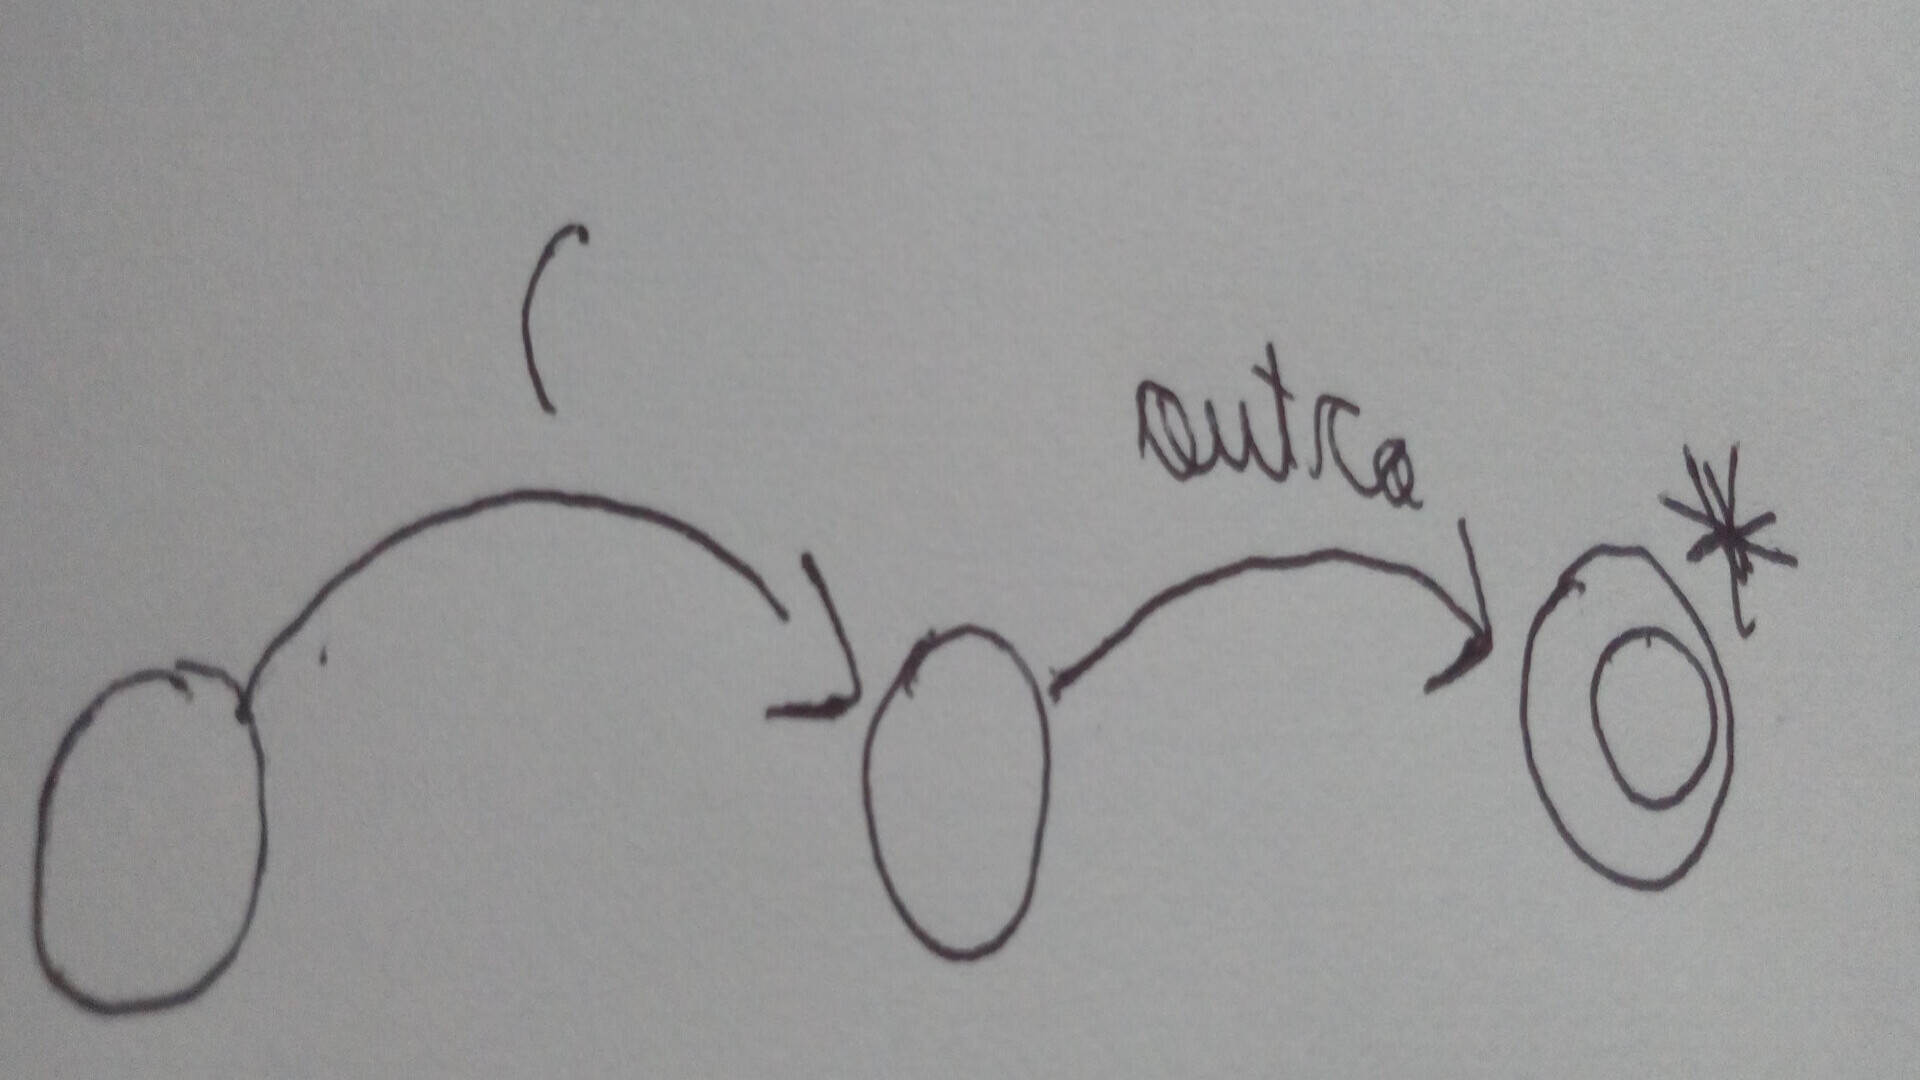 (
outro
*